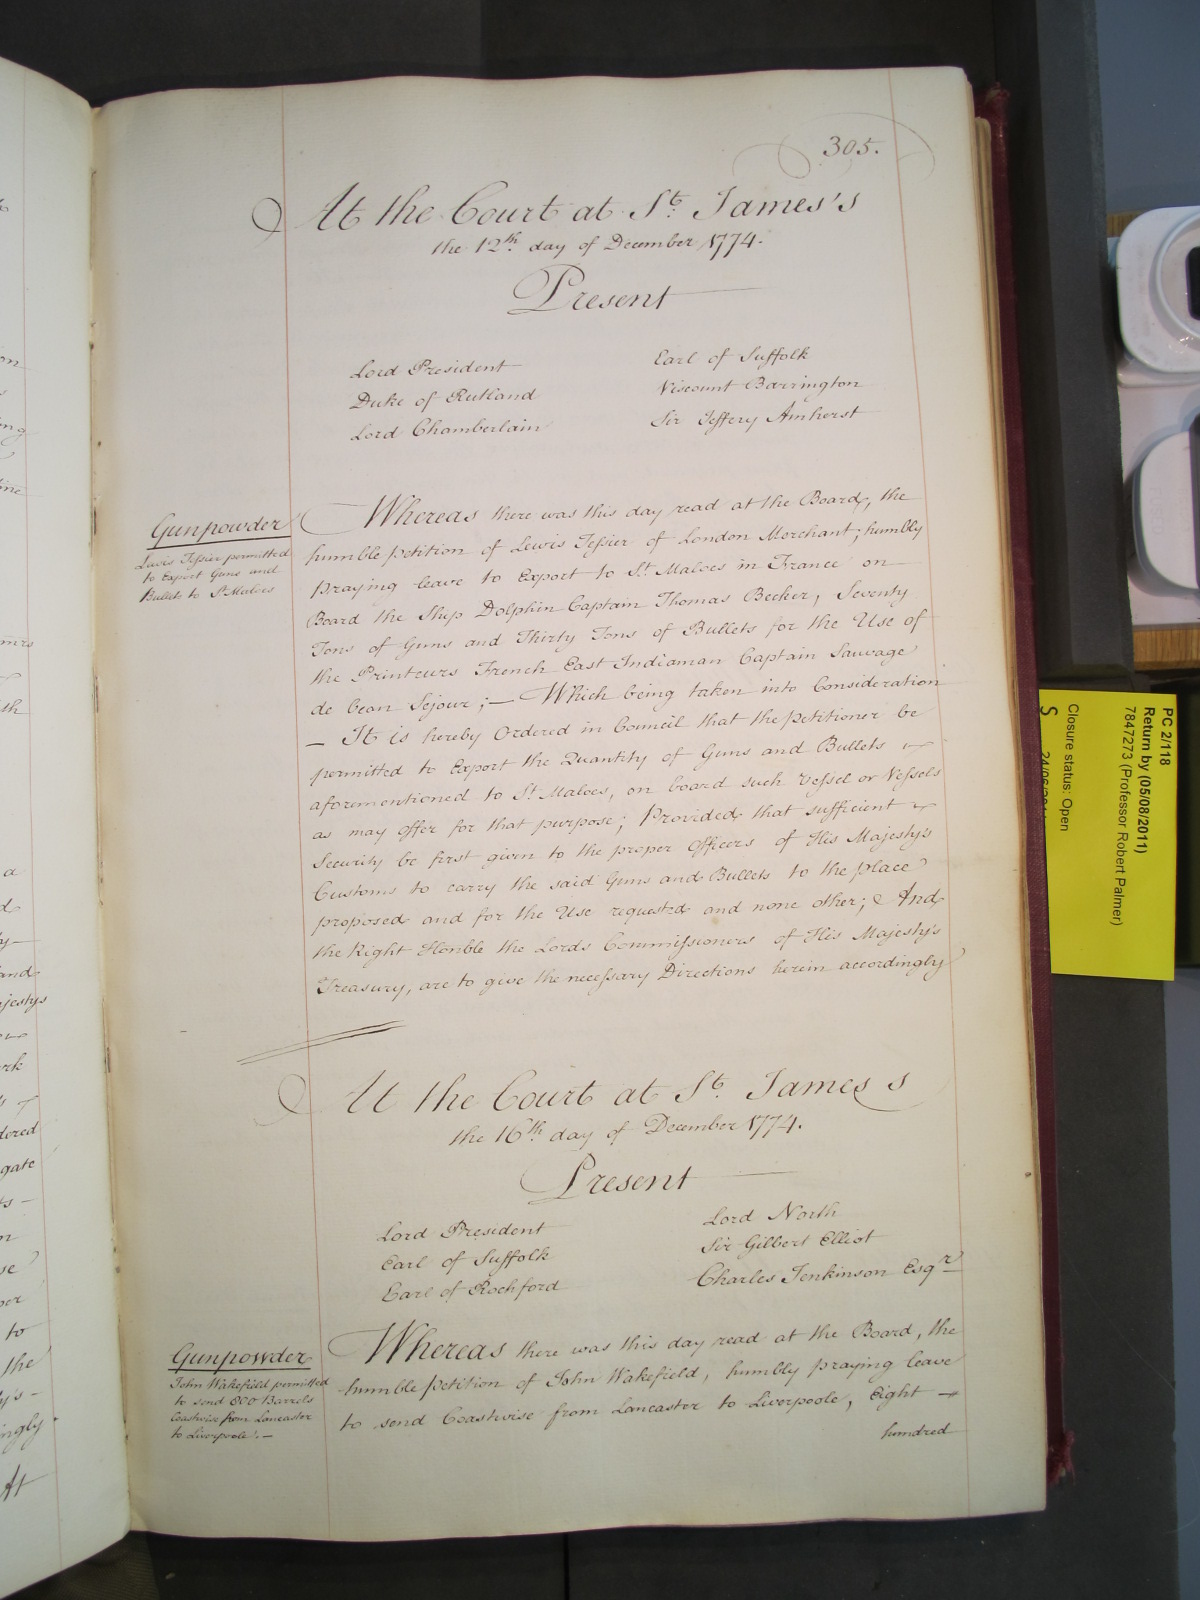 305.
At the Court at St. James's
the 12th. day of December 1774.
Present
Lord President
Duke of Rutland
Lord Chamberlain
Earl of Suffolk
Viscount Barrington
Sir Jeffery Amherst
Gunpowder
Lewis Tessier permitted
to Export Guns and
Bullets to St. Maloes
Whereas there was this day read at the Board, the
humble petition of Lewis Tessier of London Merchant; humbly
praying leave to Export to St. Maloes in France on
Board the Ship Dolphin Captain Thomas Becker, Seventy
Tons of Guns and Thirty Tons of Bullets for the Use of
the Printeurs French East Indiaman Captain Sauvage
de bean Sejour; — Which being taken into Consideration
— It is hereby Ordered in Council that the petitioner be
permitted to Export the Quantity of Guns and Bullets
aforementioned to St. Maloes, on board such Vessel or Vessels
as may offer for that purpose; Provided that sufficient
Security be first given to the proper Officers of His Majesty's
Customs to carry the said Guns and Bullets to the place
proposed and for the Use requested and none other; And
the Right Honble the Lords Commissioners of His Majesty's
Treasury, are to give the necessary Directions herein accordingly
At the Court at St. James's
the 16th day of December 1774.
Present
Lord President
Earl of Suffolk
Earl of Rochford
Lord North
Sir Gilbert Elliot
Charles Jenkinson Esqr
Gunpowder
John Wakefield permitted
to send 800 Barrels
Coastwise from Lancaster
to Liverpoole. —
Whereas there was this day read at the Board, the
humble petition of John Wakefield, humbly praying leave
to send Coastwise from Lancaster to Liverpoole, Eight
hundred
PC 2/118
Return by (05/08/2011)
7847273 (Professor Robert Palmer)
Closure status: Open
S